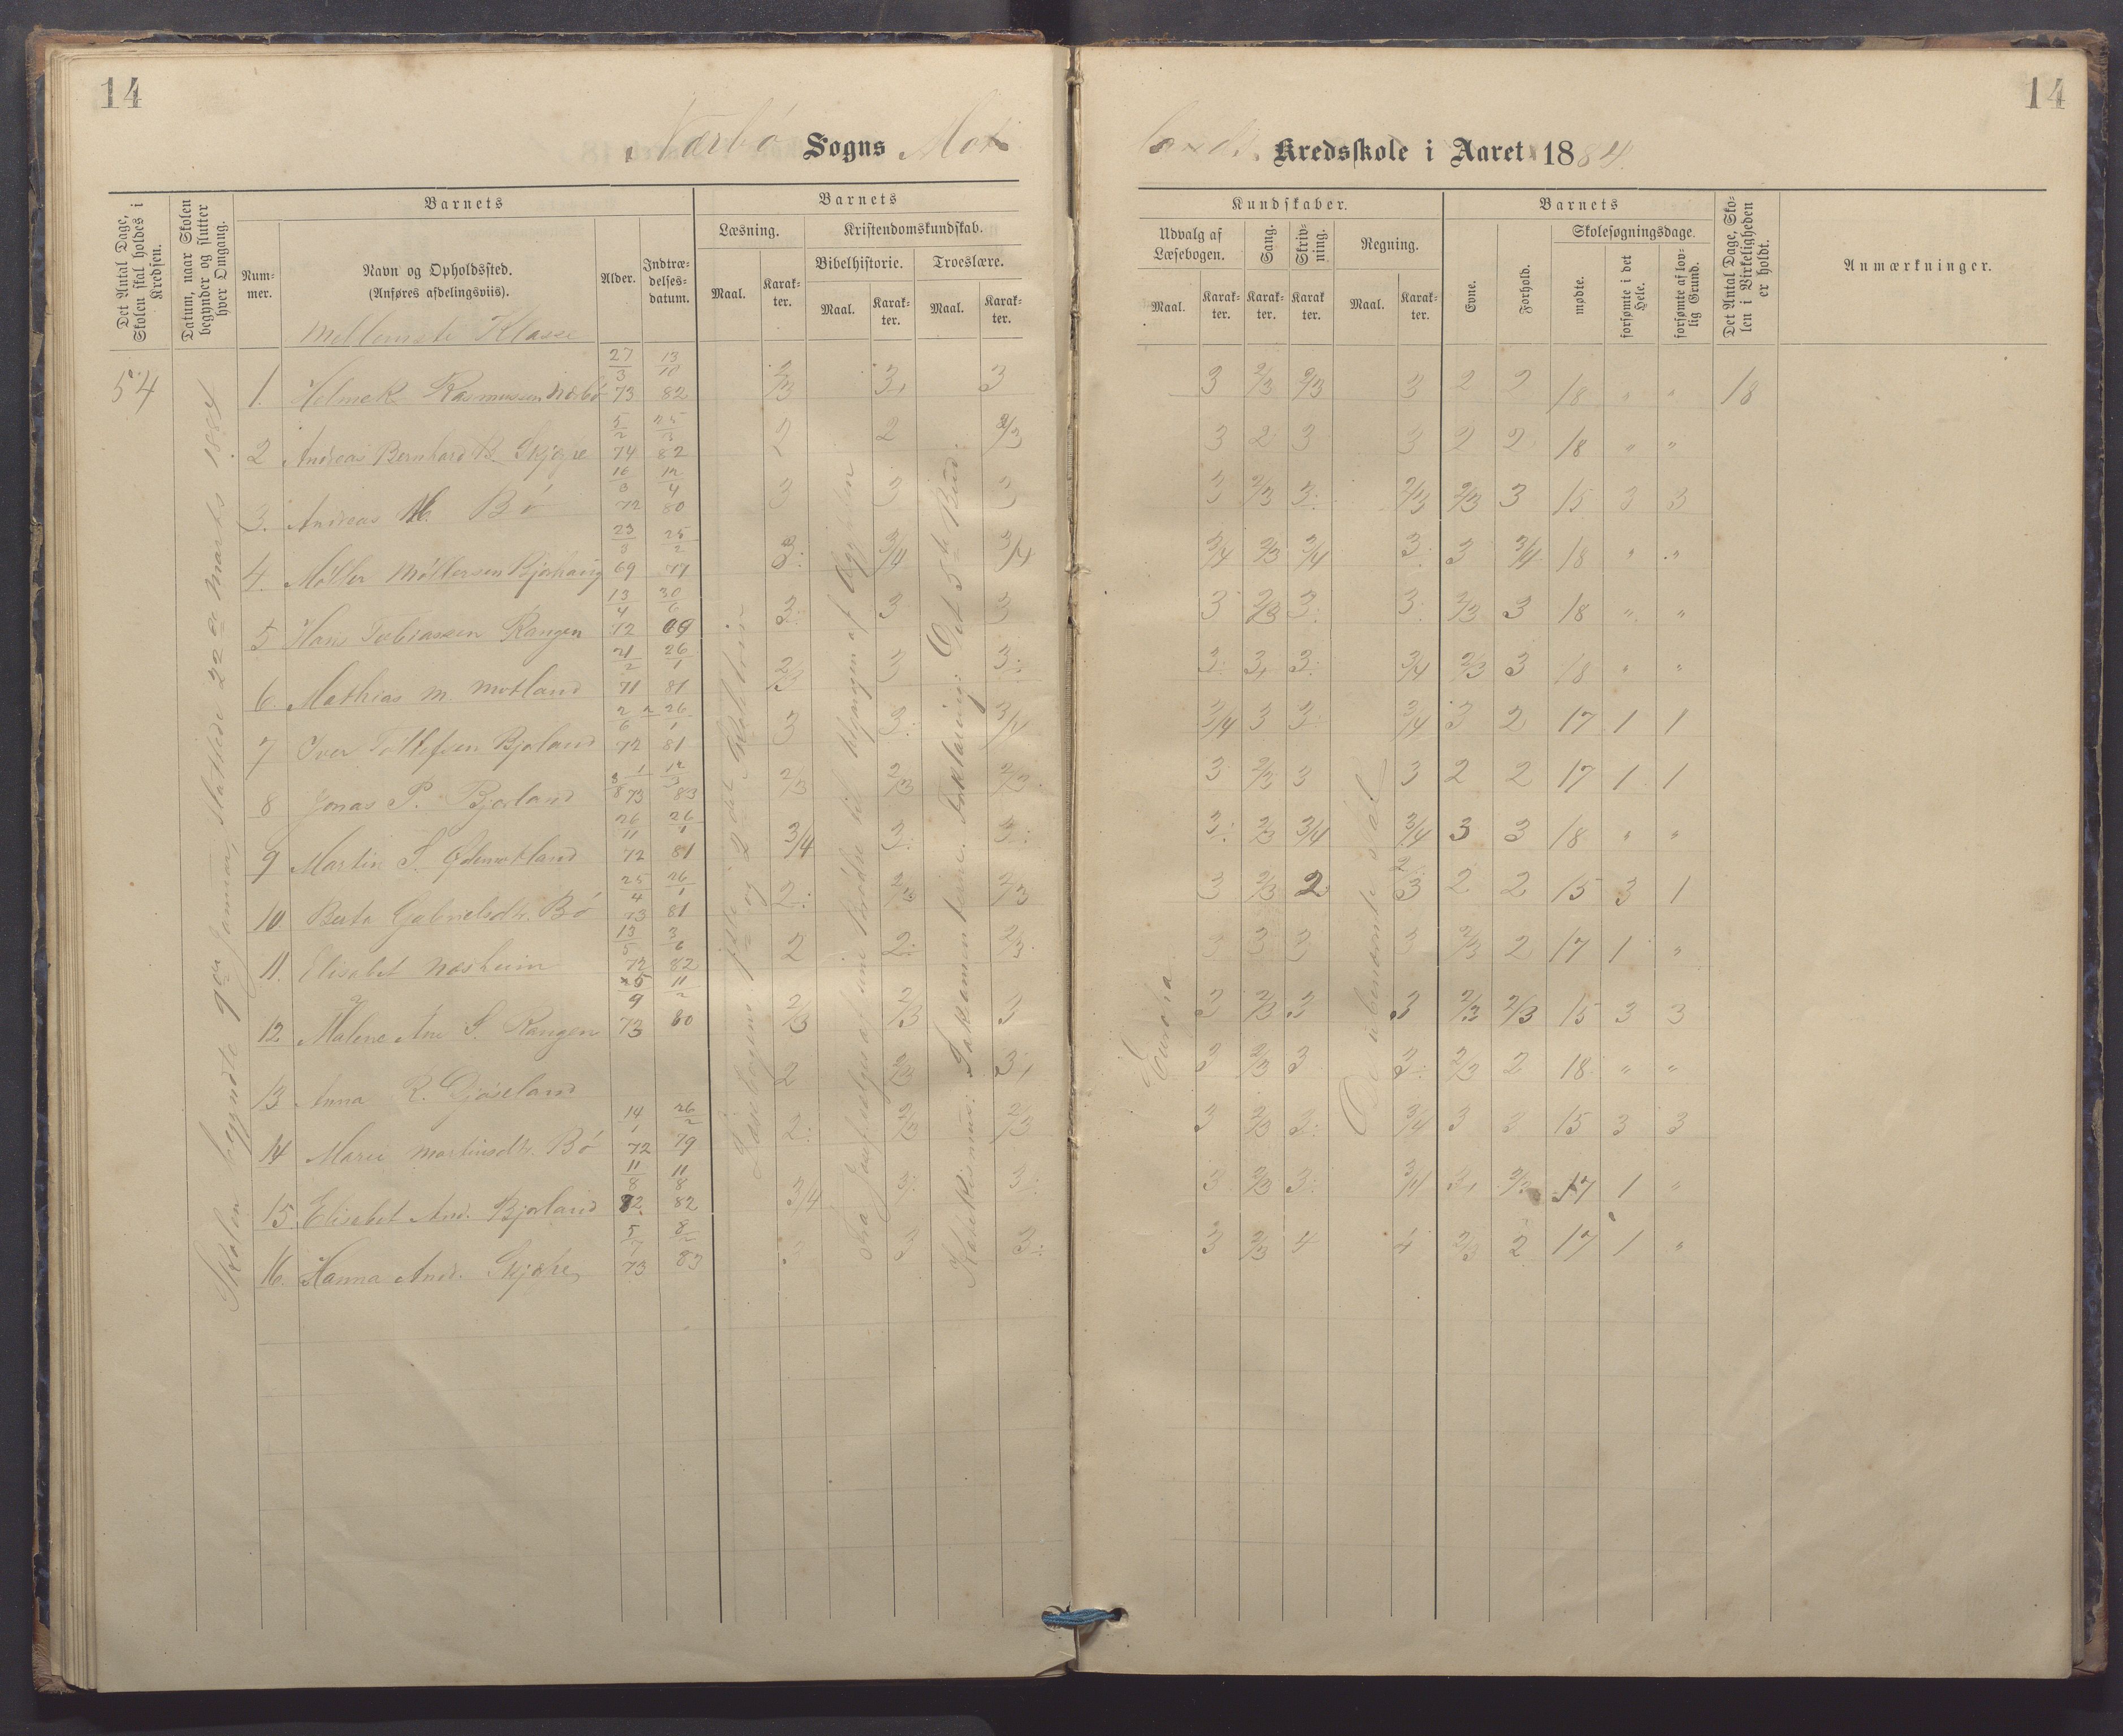 14
14
Nærbø Sogns Mot
lands Kredsskole i Aaret 1884
Det Antal Dage, Skolen skal holdes i Kredsen.
Datum, naar Skolen begynder og slutter hver Omgang.
Barnets
Num-mer.
Navn og Opholdssted.
(Anføres afdelingsviis).
Alder.
Indtræ-delses-datum.
Barnets
Læsning.
Kristendomskundskab.
Bibelhistorie.
Troeslære.
Maal.
Karak-ter.
Maal.
Karak-ter.
Maal.
Karak-ter.
Kundskaber.
Udvalg af Læsebogen.
Sang.
Skriv-ning.
Regning.
Maal.
Karak-ter.
Karak-ter.
Karak ter.
Maal.
Karak-ter.
Barnets
Evne.
Forhold.
Skolesøgningsdage.
mødte.
forsømte i det Hele.
forsømte af lov-lig Grund.
Det Antal Dage, Sko-len i Virkeligheden er holdt.
Anmærkninger.
Mellemste Klasse
54
Skolen begyndte 9de Januar, sluttede 22de Marts 1884
Læsebogens 1ste og 2det
Fra Josef sælges af sine Brødre til Udgangen af Ægypten
Katekismus: Sakramenterne. Forklaring: Det 5te Bud.
Europa
De ubenævnte Tal
1. Helmek Rasmussen Nærbø 27/3 73 13/10 82 2/3 3, 3 3 2/3 2/3 3 2 2 18 " " 18
2 Andreas Bernhard B. Skjære 5/2 74 25/3 82 2 2 2/3 3 2 3 3 2 2 18 " "
3. Andreas M. Bø 16/3 72 12/4 80 3 3 3 3 2/3 3: 2/3 2/3 3 15 3 3
4. Møller Møllersen Bjorhaug 23/3 69 25/2 77 3: 3/4 3/4 3/4 2/3 3/4 3: 3 3/4 18 " "
5 Hans Tobiassen Rangen 13/4 72 30/6 69 3: 3 3 3 2/3 3: 3: 2/3 3 18 " "
6. Mathias M. Motland 21/2 71 26/1 81 2/3 3 3: 3: 3, 3: 3/4 2/3 3 18 " "
7 Iver Tollefsen Bjoland 2/6 72 26/1 81 3 3: 3/4 3/4 3 3: 3/4 3 2 17 1 1
8 Jonas P. Bjorland 1/8 73 12/3 83 2/3 2/3 2/3 3 2/3 3 3 2 2 17 1 1
9 Martin S. Ødemotland 26/11 72 26/1 81 3/4 3: 3: 3: 2/3 3/4 3/4 3 3 18 " "
10 Berta Gabrielsdtr. Bø 25/4 73 26/1 81 2: 2/3 2/3 3 2/3 2 2/3 2 2 15 3 1
11. Elisabet Næsheim 13/5 72 3/6 82 2 2: 2/3 3 3 3 3 2/3 2 17 1 "
12. Malene Ane S. Rangen 25/9 73 11/2 80 2/3 2/3 3 3 2/3 3 3 2/3 2/3 15 3 3
13 Anna R. Gjøseland 2 2/3 3, 3 2/3 3 3: 2/3 2 18 " "
14 Marie Martinsdtr. Bø 14/1 72 26/2 79 2: 2/3 2/3 3 2/3 3: 3/4 3 3 15 3 3
15 Elisabet And. Bjorland 11/8 72 11/8 82 3/4 3: 3: 3 2/3 3: 3/4 3, 2/3 17 1 "
16. Hanna And. Skjære 5/7 73 83 3 3: 3 2/3 4 4 2/3 2 17 1 "